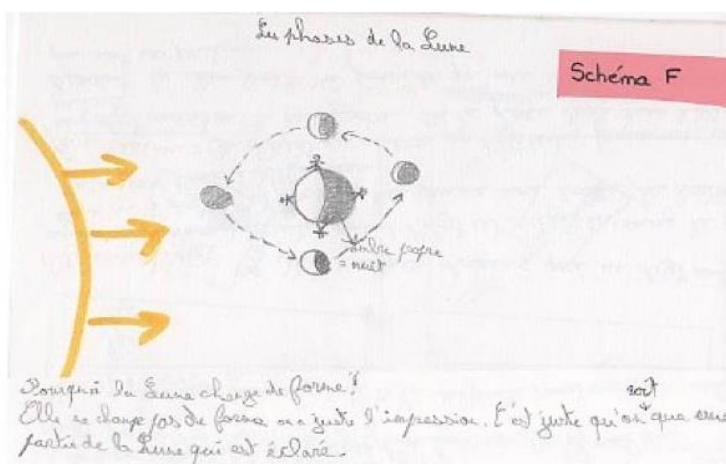 Les phases de la Lune
Schéma F
ombre propre
= nuit
Pourquoi la Lune change de forme ?
soit
Elle ne change pas de forme on a juste l'impression. C'est juste qu'on que une
partie de la Lune qui est éclaré.